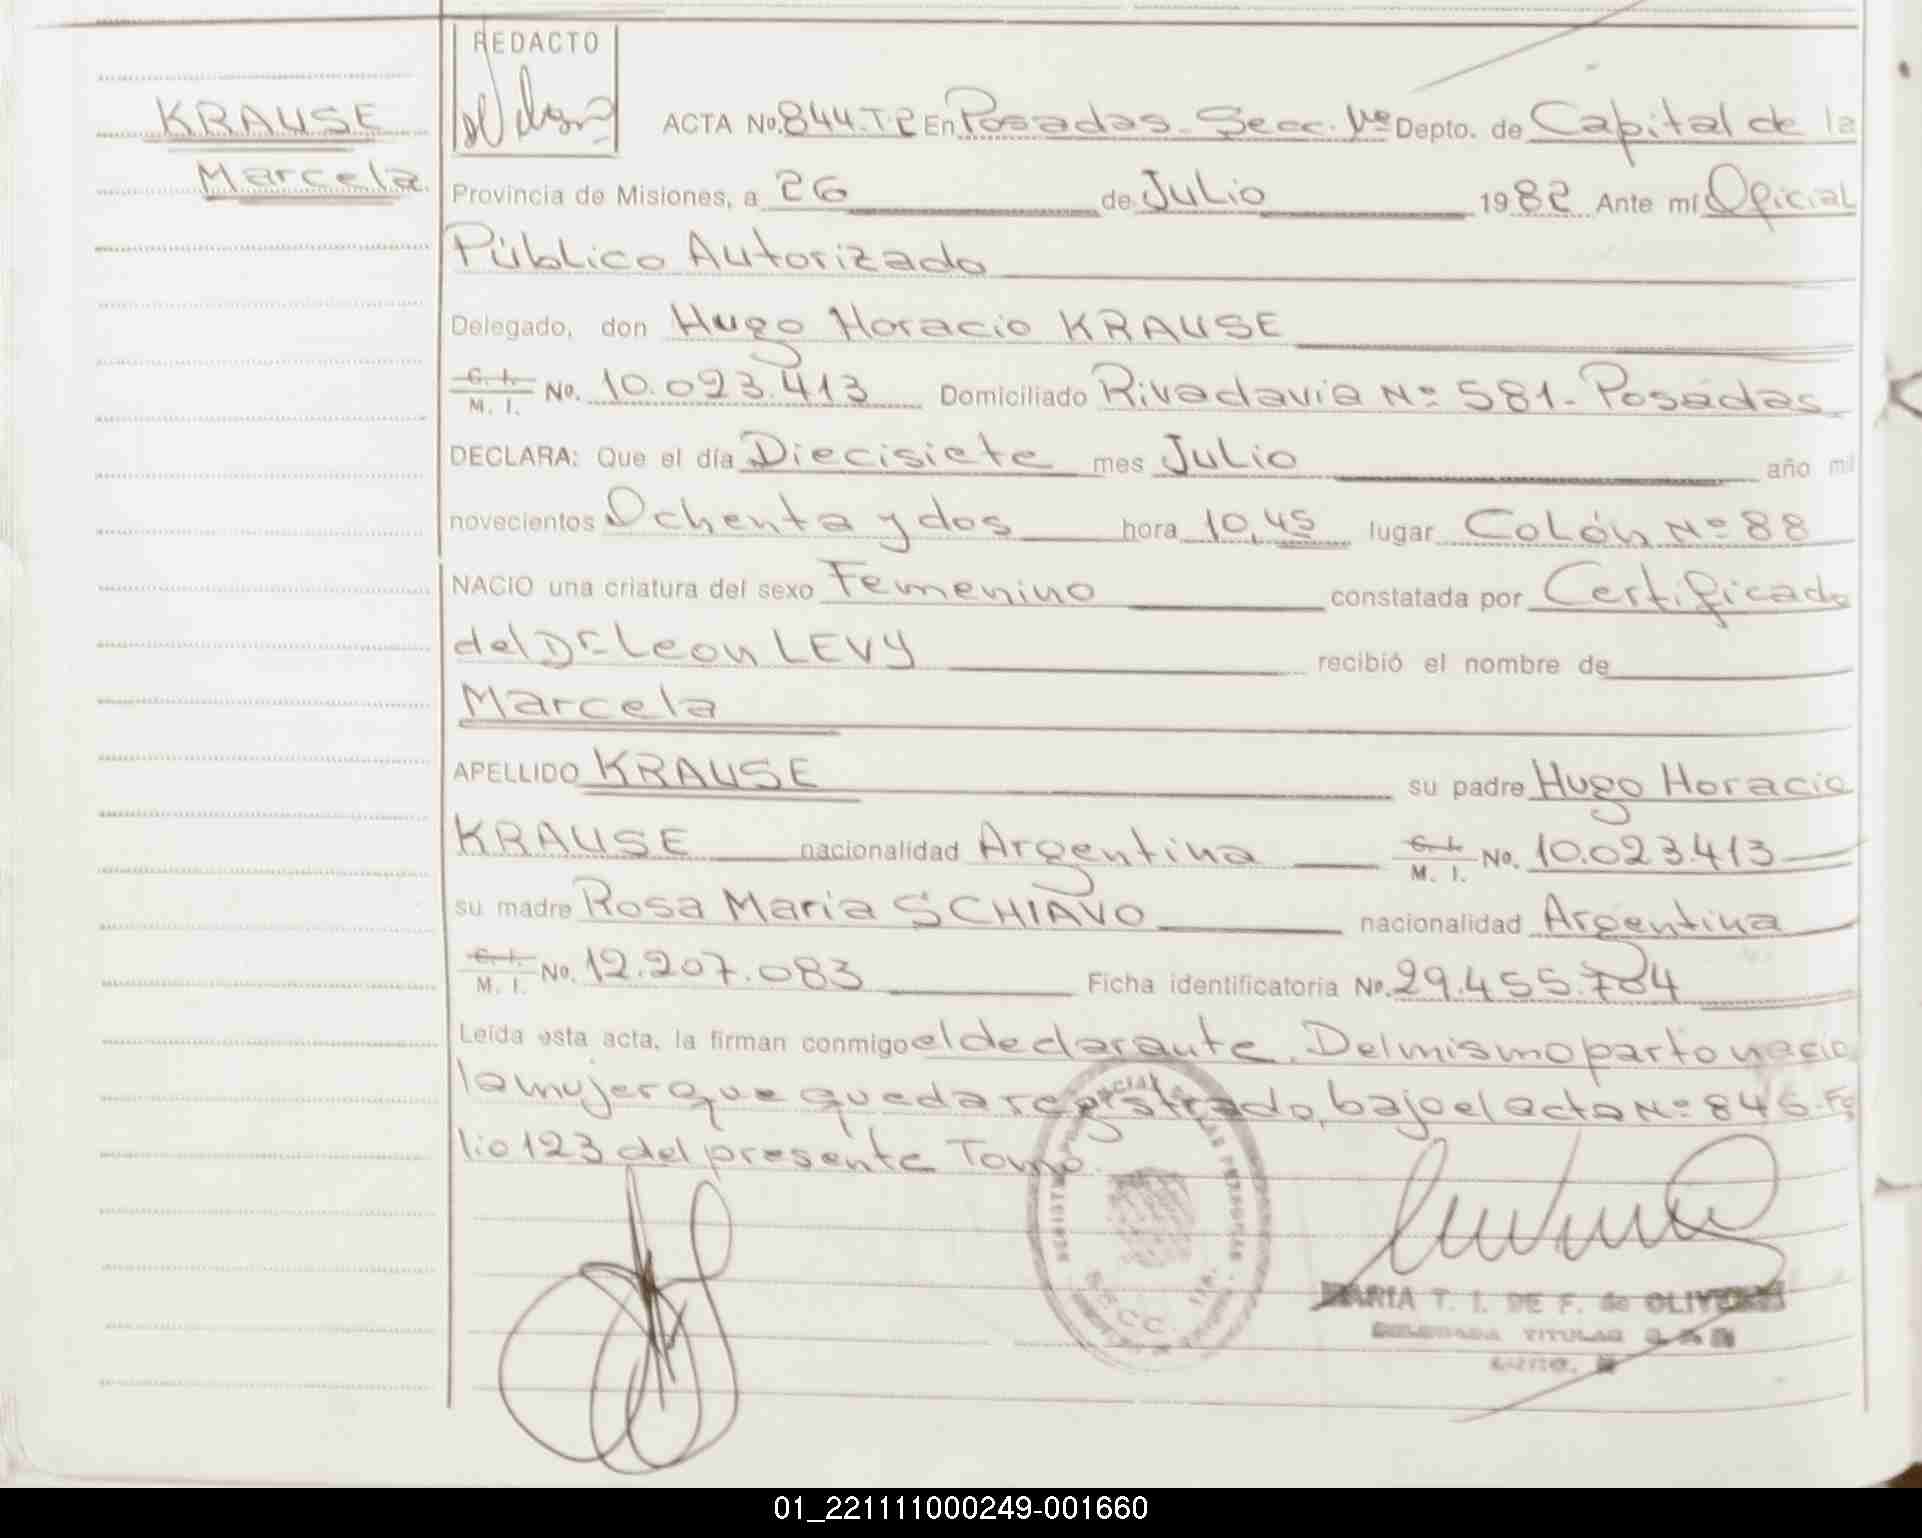 REDACTO
KRAUSE
Marcela
ACTA No. 844.T.2 En Posadas - Secc. 1ra Depto. de Capital de la
Provincia de Misiones, a 26 de Julio 1982 Ante mí Oficial
Público Autorizado
Delegado, don Hugo Horacio KRAUSE
C. I. / M. I. No. 10.023.413 Domiciliado Rivadavia Nº 581 - Posadas
DECLARA: Que el día Diecisiete mes Julio año mil
novecientos Ochenta y dos hora 10,45 lugar Colón Nº 88
NACIO una criatura del sexo Femenino constatada por Certificado
del Dr Leon LEVY recibió el nombre de
Marcela
APELLIDO KRAUSE su padre Hugo Horacio
KRAUSE nacionalidad Argentina C. I. / M. I. No. 10.023.413
su madre Rosa Maria SCHIAVO nacionalidad Argentina
C. I. / M. I. No. 12.207.083 Ficha identificatoria No. 29.455.784
Leída esta acta, la firman conmigo el declarante. Del mismo parto nacio
la mujer que queda registrado, bajo el acta Nº 845. Fo
lio 123 del presente Tomo.
SECC. 1ra.
MARIA T. I. DE F. de OLIVERA
DELEGADA TITULAR
01_221111000249-001660